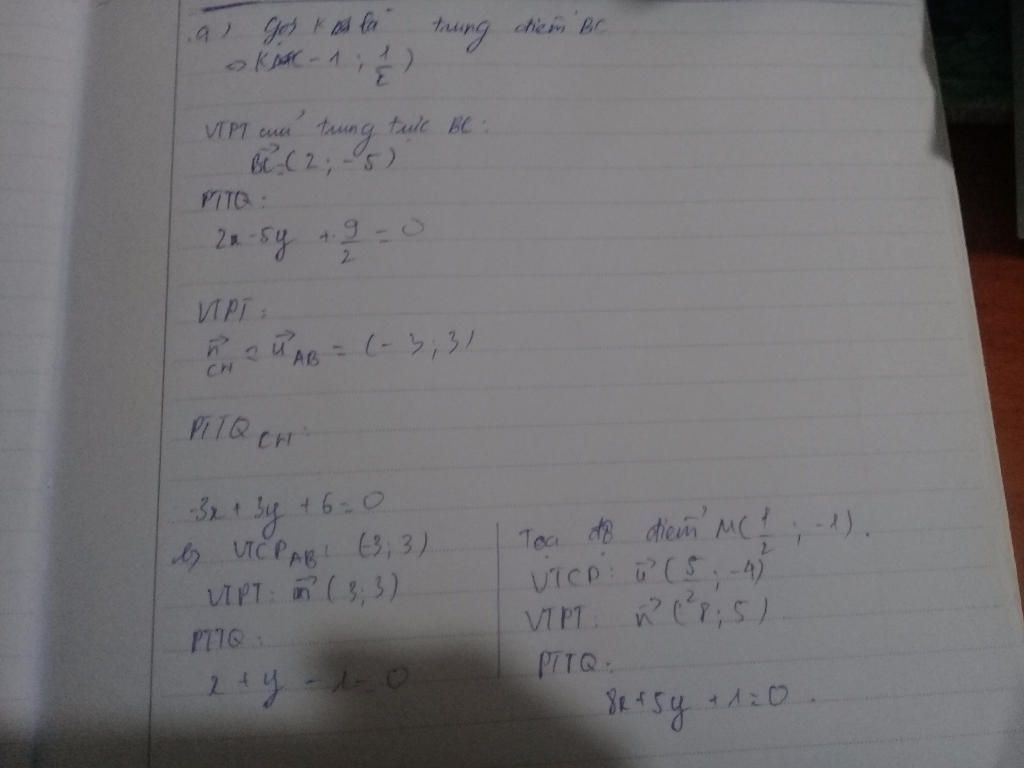 a) gọi K là trung điểm BC
=> K(-1; 1/2)
VTPT của trung trực BC:
BC→=(2; -5)
PTTQ:
2x-5y + 9/2 = 0
VTPT:
n→CH = u→AB = (-3; 3)
PTTQ CH:
-3x + 3y + 6 = 0
b) VTCP AB: (-3; 3)
VTPT: n→ (3; 3)
PTTQ:
x + y - 1 = 0
Tọa độ điểm M(1/2; -1).
VTCP: u→ (5/2; -4)
VTPT: n→ (8; 5)
PTTQ:
8x+5y+1=0.